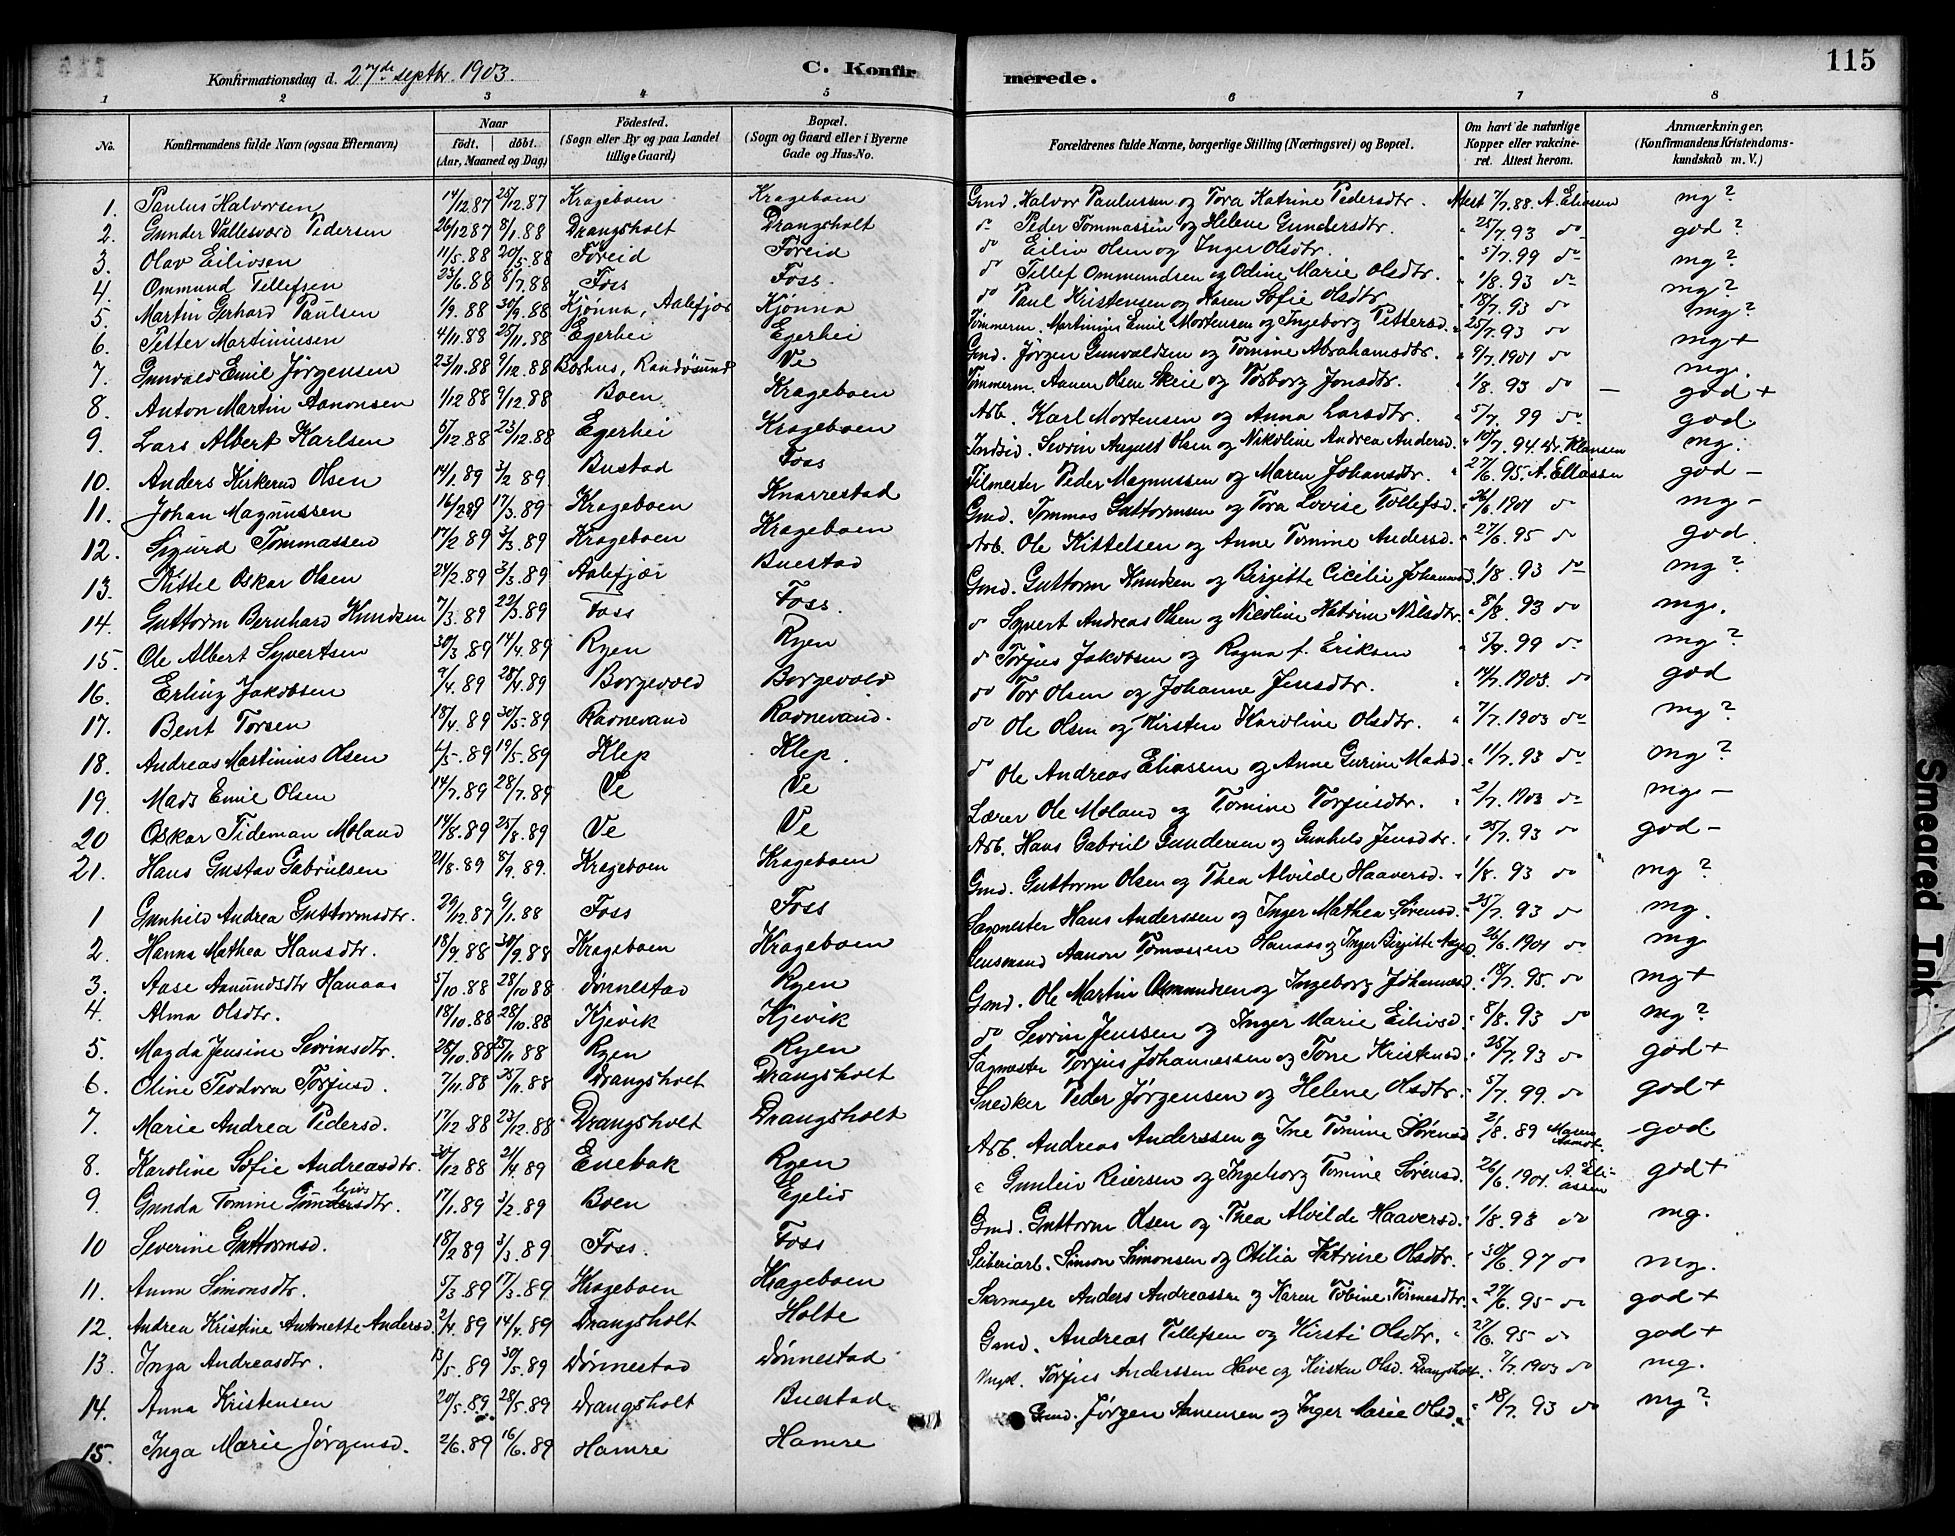 Konfirmationsdag d. 27de septbr. 1903.
C. Konfirmerede.
115
1 2 3 4 5 6 7 8
No.
Konfirmandens fulde Navn (ogsaa Efternavn)
Naar
födt. döbt.
(Aar, Maaned og Dag)
Födested.
(Sogn eller By og paa Landet
tillige Gaard)
Bopæl.
(Sogn og Gaard eller i Byerne
Gade og Hus-No.
Forældrenes fulde Navne, borgerlige Stilling (Næringsvei) og Bopæl.
Om havt de naturlige
Kopper eller vakcine-
ret. Attest herom.
Anmærkninger.
(Konfirmandens Kristendoms-
kundskab m. V.)
1. Paulus Halvorsen 14/12.87 25/12.87 Krageboen Krageboen Gmd. Halvor Paulussen og Tora Katrine Pedersdtr. Attest 7/7.88. A. Eliassen mg?
2. Gunder Vallesværd Pedersen 26/12 87 8/1.88 Drangsholt Drangsholt do Peder Tommassen og Helene Gundersdtr. 25/7.93 do god?
3. Olav Eilivsen 11/5.88 20/5.88 Foreid Foreid do Eiliv Olsen og Inger Olsdtr. 5/7.99 do mg?
4. Ommund Tellefsen 23/6.88 8/7.88 Foss Foss. do Tellef Ommundsen og Odine Marie Olsdtr. 1/8.93 do mg?
5. Martin Gerhard Paulsen 1/9.88 30/9.88 Kjønna, Aalefjær Kjønna do Paul Kristensen og Karen Sofie Olsdtr 18/7.93 do mg?
6. Petter Martiniusen 4/11.88 25/11.88 Egerhei Egerhei Tømmerm. Martinius Emil Mortensen og Ingeborg Pettersd. 25/7.93 do mg+
7. Gunvald Emil Jørgensen 23/11.88 9/12.88 Randøsund Ve Gmd. Jørgen Gunvaldsen og Tomine Abrahamsdtr. 9/7.1901 do mg.
8. Anton Martin Aanonsen 1/12 88 9/12.88 Boen Krageboen Tømmerm. Aanen Olsen Skrie og Torborg Jonsdtr. 1/8.93 do god +
9. Lars Albert Karlsen 5/12.88 23/12.88 Egerhei Krageboen Arb. Karl Mortensen og Anna Larsdtr. 5/7.99 do god
10. Anders Kirkerud Olsen 14/1.89 3/2 89 Bustad Foss Sevrin August Olsen og Nikoline Andrea Andersd. 10/7.94. Dr. Klausen mg.
11. Johan Magnussen 16/2 89 17/3.89 Krageboen Knarrestad Filmester Peder Magnussen og Maren Johansdtr. 27/6.95. A. Eliassen god –
12. Sigurd Tommassen 17/2 89 3/3.89 Krageboen Krageboen Gmd. Tommas Guttormsen og Tora Lovise Tellefsd. 26/6.1901 do mg –
13. Kittel Oskar Olsen 24/2.89 31/3.89 Aalefjær Buestad Arb. Ole Kittelsen og Anne Tomine Andersd. 27/6.95 do god.
14. Guttorm Bernhard Knudsen 7/3.89 22/3.89 Foss Foss. Gmd. Guttorm Knudsen og Birgitte Cicilie Johannsd. 1/8.93 do mg?
15. Ole Albert Syvertsen 30/3.89 14/4.89 Ryen Ryen do Syvert Andreas Olsen og Nicoline Katrine Nilsdtr. 8/8.93 do mg.
16. Erling Jakobsen 7/4.89 28/4.89 Borgevold Borgevold do Torjus Jakobsen og Ragna f. Eriksen 5/7.99 do mg?
17. Bent Torsen 18/4.89 30/5.89 Ravnevand Ravnevand. do Tor Olsen og Johanne Jensdtr. 14/7.1903. do god
18. Andreas Martinius Olsen 4/5.89 19/5.89 Klep Klep. do Ole Olsen og Kirsten Karoline Olsdtr. 7/7.1903 do mg?
19. Mads Emil Olsen 14/7.89 28/7.89 Ve Ve do Ole Andreas Eliassen og Anne Gurine Madsd. 11/7.93 do mg?
20 Oskar Tideman Moland 14/8.89 25/8.89 Ve Ve Lærer Ole Moland og Tomine Torjusdtr. 2/7.1903 do mg –
21. Hans Gustav Gabrielsen 21/8.89 8/9.89. Krageboen Krageboen Arb. Hans Gabriel Gundersen og Gunhild Jensdtr. 25/7.93 do god –
1 Gunhild Andrea Guttormsdtr. 29/12.87 9/1.88 Foss Foss Gmd. Guttorm Olsen og Thea Alvilde Haaversd. 1/8.93 do mg?
2. Hanna Mathea Hansdtr. 18/9.88 30/9.88 Krageboen Krageboen Sagmester Hans Anderssen og Inger Mathea Sørensd. 25/7.93 do mg.
3. Aase Aanundsdtr Hanaas 5/10.88 28/10 88 Dønnestad Ryen Lensmand Aanon Tomassen Hanaas og Inger Birgitte 26/6.1901 do mg
4. Alma Olsdtr. 18/10.88 28/10.88 Kjevik Kjevik Gmd. Ole Martin Osmundsen og Ingeborg Johannesd. 18/7.95. do mg+
5. Magda Jensine Sevrinsdtr. 28/10.88 25/11 88 Ryen Ryen do Sevrin Jenssen og Inger Marie Eilivsd. 8/8.93 do mg?
6. Oline Teodora Torjusd. 7/11.88 25/11.88 Drangsholt Drangsholt Sagmester Torjus Johannessen og Tone Kristensd. 25/7.93 do god+
7. Marie Andrea Pedersd. 17/12.88 23/12.88 Drangsholt Drangsholt Snedker Peder Jørgensen og Helene Olsdtr. 5/7.99. do god+
8. Karoline Sofie Andreasdtr. 30/12 88 21/4.89 Enebak Ryen Arb. Andreas Anderssen og Ine Tomine Sørensd 2/8.89 god
9. Gunda Tomine Gundersdtr. leivs 17/1.89 3/2.89 Boen Egelid Gunleiv Reiersen og Ingeborg Tomine Sørensd. 26/6.1901. A. Eliassen god+
10 Severine Guttormsd. 18/2 89 3/3.89. Foss. Foss Gmd. Guttorm Olsen og Thea Alvilde Haaversd. 1/8.93 do mg.
11. Anna Simonsdtr. 5/3.89 17/3.89 Krageboen Krageboen Sliberiarb. Simon Simonsen og Otilia Katrine Olsdtr. 30/6.97 do mg.
12. Andrea Kristine Antonette Andersd. 2/4.89 14/4.89 Drangsholt Holte Skrmager Anders Andreassen og Karen Tobine Tomesdtr. 27/6.95 do god+
13. Inga Andreasdtr. 13/5.89 30/5.89 Dønnestad Dønnestad Gmd. Andreas Tellefsen og Kirsti Olsdtr. 27/6.95 do god+
14. Anna Kristensen 20/5.89. 28/5.89 Drangsholt Buestad Torjus Anderssen Have og Kirsten Olsd. Drangsholt. 7/7.1903 do mg.
15. Inga Marie Jørgensd. 2/6.89 16/6.89 Hamre Hamre Gmd. Jørgen Aanensen og Inger Marie Olsd. 18/7.93 do mg?
Smeared Ink